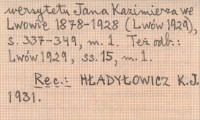 wersytetu Jana Kazimierza we
Lwowie 1878-1928 (Lwów 1929),
s. 337-349, m. 1. Też odb.:
Lwów 1929, ss. 15, m. 1.
Rec.: HŁADYŁOWICZ K.J.
1931.